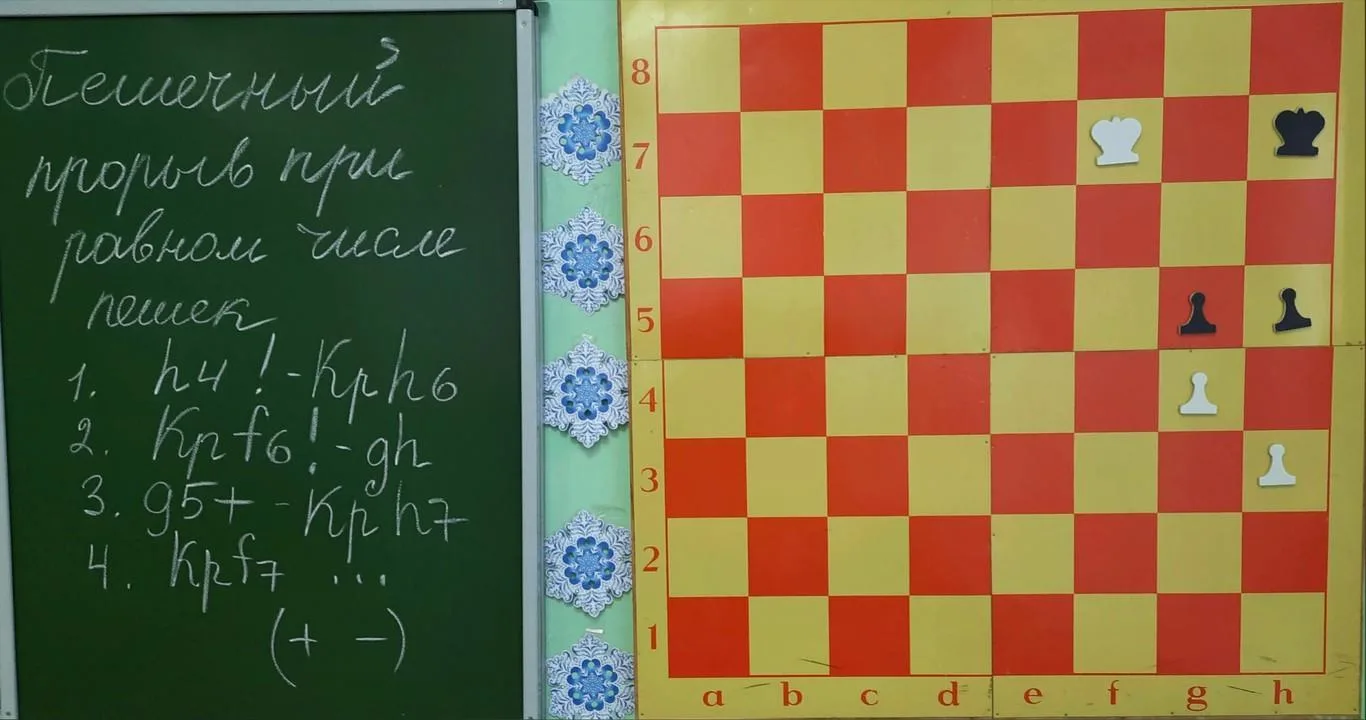 Пешечный
прорыв при
равном числе
пешек
1. h4! - Крh6
2. Крf6! - gh
3. g5+ - Крh7
4. Крf7 ...
(+ -)
8
7
6
5
4
3
2
1
a b c d e f g h